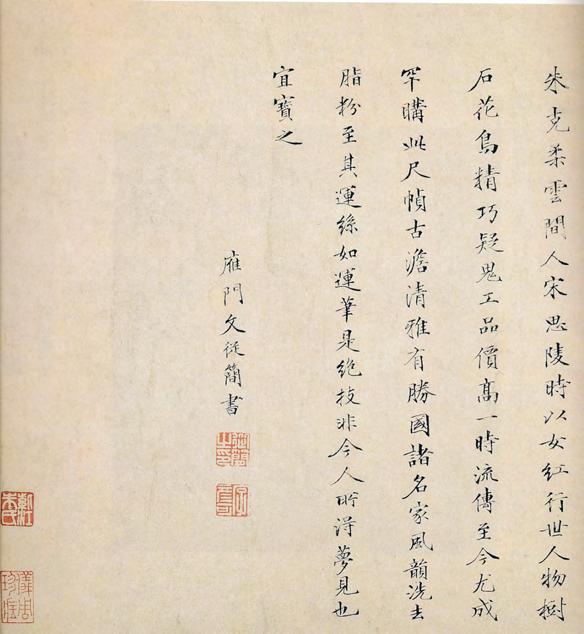 朱克柔雲間人宋思陵時以女紅行世人物樹
石花鳥精巧疑鬼工品價髙一時流傳至今尤成
罕購此尺幀古澹清雅有勝國諸名家風韻洗去
脂粉至其運絲如運筆是絶技非今人所得夢見也
宜寳之
雁門文從簡書